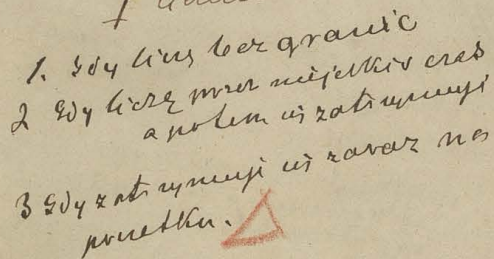 1. Gdy liczę bez granic
2 Gdy liczę przez niejakiś czas
a potem się zatrzymuję
3 Gdy zatrzymuję się zaraz na
początku.